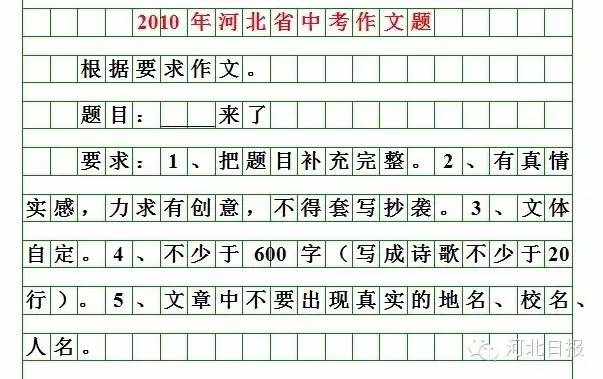 2010年河北省中考作文题
根据要求作文。
题目：____来了
要求：1、把题目补充完整。2、有真情
实感，力求有创意，不得套写抄袭。3、文体
自定。4、不少于600字（写成诗歌不少于20
行）。5、文章中不要出现真实的地名、校名、
人名。
河北日报